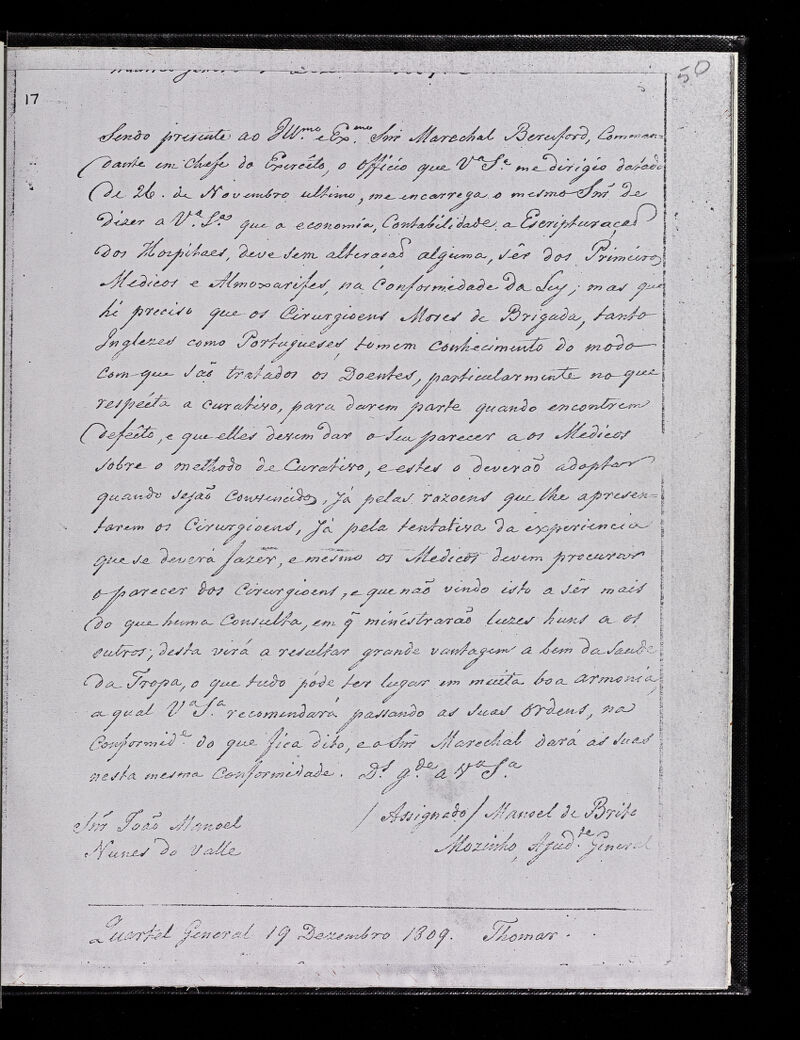 50
17
Sendo presente ao Ill.mo e Ex.mo Snr Marechal Beresford, Comman-
dante em Chefe do Exercito, o Officio que V.ª S.ª me dirigio datado
de 26. de Novembro ultimo, me encarrega o mesmo Snr de
dizer a V.ª S.ª que a economia, Contabilidade, a Escripturação
dos Hospitaes, deve sem alteração alguma, sêr dos Primeiros
Medicos e Almoxarifes, na Conformidade da Ley; mas que
hé preciso que os Cirurgioens Mores de Brigada, tanto
Inglezes como Portugueses, tomem conhecimento do modo
com que são tratados os Doentes, particularmente no que
respeita a curativo, para darem parte quando encontrem
defeito, e que elles devem dar o seu parecer aos Medicos
sobre o methodo de Curativo, e estes o deverão adoptar
quando sejão convencidos, já pelas razoens que lhe apresen-
tarem os Cirurgioens, já pela tentativa da experiencia
que se deverá fazer, e mesmo os Medicos devem procurar
o parecer dos Cirurgioens, e que não vindo isto a sêr mais
do que huma Consulta, em q̃ ministrarão luzes huns a os
outros; desta virá a resultar grande vantagem a bem da Saude
da Tropa, o que tudo póde ter lugar em muita boa armonia,
a qual V.ª S.ª recomendará passando as suas Ordens, na
Conformid.e do que fica dito, e o Snr Marechal dará as suas
nesta mesma Conformidade. D.s g.de a V.ª S.ª
/ Assignado / Manoel de Brito
Snr João Manoel
Nunes do Valle
Mozinho, Ajud.te General
Quartel General 19 Dezembro 1809. Thomar.